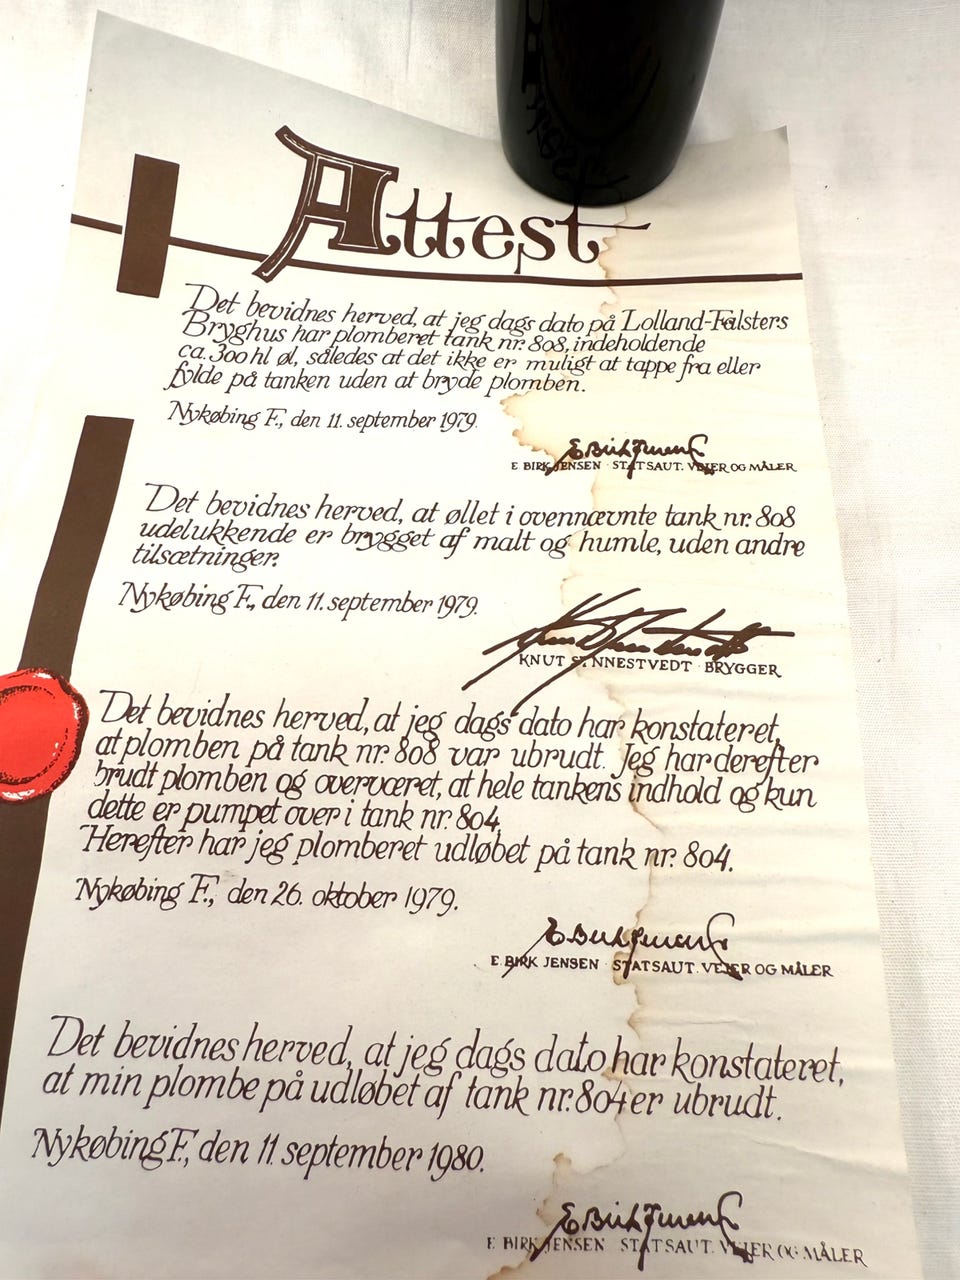 Attest
Det bevidnes herved, at jeg dags dato på Lolland-Falsters
Bryghus har plomberet tank nr. 808, indeholdende
ca. 300 hl øl, således at det ikke er muligt at tappe fra eller
fylde på tanken uden at bryde plomben.
Nykøbing F., den 11. september 1979.
E. BIRK JENSEN · STATSAUT. VEJER OG MÅLER
Det bevidnes herved, at øllet i ovennævnte tank nr. 808
udelukkende er brygget af malt og humle, uden andre
tilsætninger.
Nykøbing F., den 11. september 1979.
KNUT SINNESTVEDT · BRYGGER
Det bevidnes herved, at jeg dags dato har konstateret,
at plomben på tank nr. 808 var ubrudt. Jeg har derefter
brudt plomben og overværet, at hele tankens indhold og kun
dette er pumpet over i tank nr. 804.
Herefter har jeg plomberet udløbet på tank nr. 804.
Nykøbing F., den 26. oktober 1979.
E. BIRK JENSEN · STATSAUT. VEJER OG MÅLER
Det bevidnes herved, at jeg dags dato har konstateret,
at min plombe på udløbet af tank nr. 804 er ubrudt.
Nykøbing F., den 11. september 1980.
E. BIRK JENSEN STATSAUT. VEJER OG MÅLER